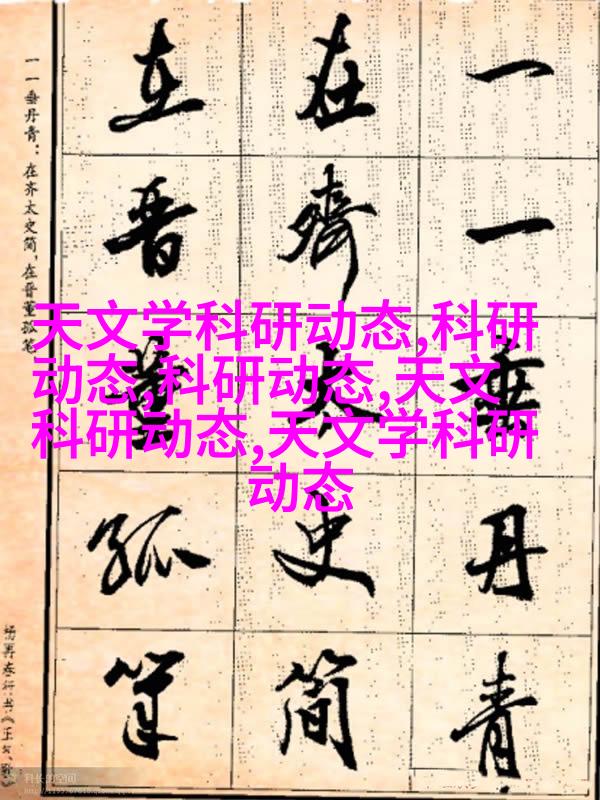 一一垂丹青
在齐太史简
在晋董狐笔
一一垂丹青:在齐太史简,在晋董狐笔
天文学科研动态,科研
动态,科研动态,天文
科研动态,天文学科研
动态
科长的空间